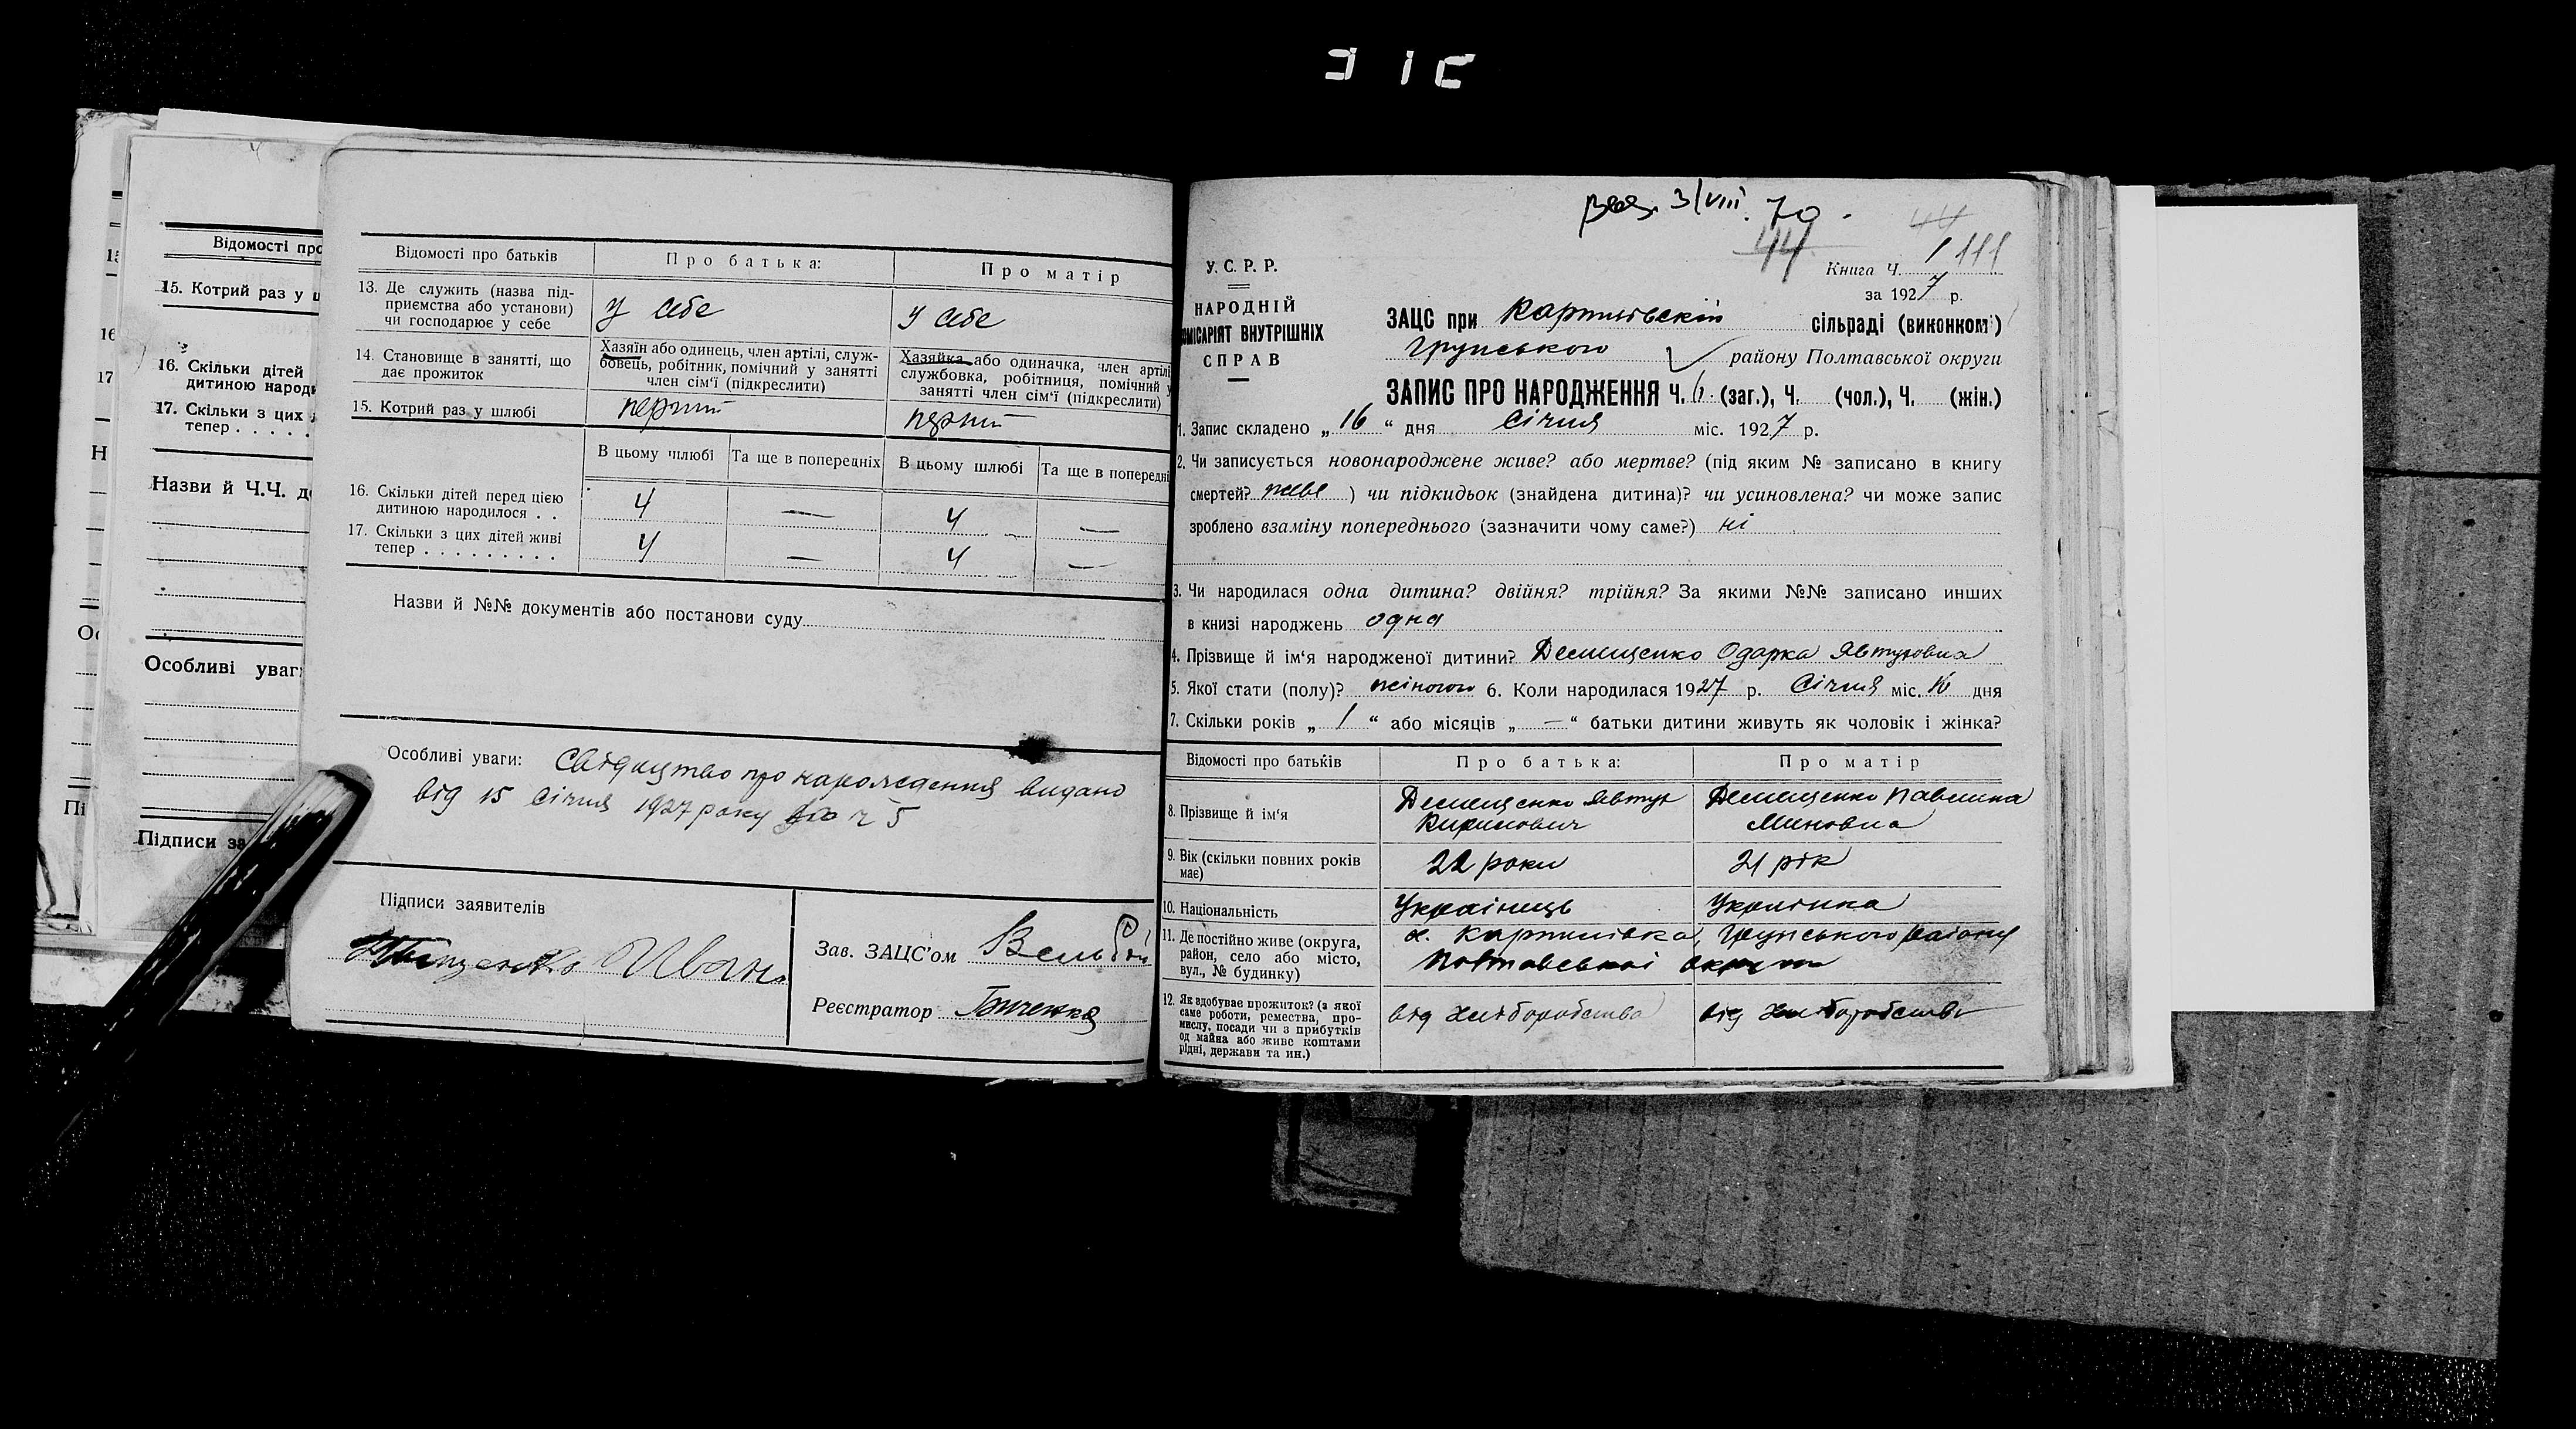 Відомості про
15. Котрий раз у ш
16. Скільки дітей
дитиною народи
17. Скільки з цих
тепер . . . . .
Назви й Ч.Ч. д
Особливі уваг
Підписи за
Відомості про батьків
Про батька:
Про матір
13. Де служить (назва під-
приємства або установи)
чи господарює у себе
у себе
у себе
14. Становище в занятті, що
дає прожиток
Хазяїн або одинець, член артілі, служ-
бовець, робітник, помічний у занятті
член сім'ї (підкреслити)
Хазяйка або одиначка, член артілі
службовка, робітниця, помічний у
занятті член сім'ї (підкреслити)
15. Котрий раз у шлюбі
перший
перший
В цьому шлюбі
Та ще в попередніх
В цьому шлюбі
Та ще в попередні
16. Скільки дітей перед цією
дитиною народилося . .
4 — 4 —
17. Скільки з цих дітей живі
тепер . . . . . . . . .
4 — 4 —
Назви й №№ документів або постанови суду
Особливі уваги: Свідоцтво про народження видано
від 15 січня 1927 року ч 5
Підписи заявителів
Иван
Зав. ЗАЦС'ом
Реєстратор
3/VIII 70
44
44
111
У. С. Р. Р.
НАРОДНІЙ
ОМІСАРІЯТ ВНУТРІШНІХ
СПРАВ
Книга Ч. 1
за 1927 р.
ЗАЦС при Карпилівскій сільраді (виконком)
Грунського району Полтавської округи
ЗАПИС ПРО НАРОДЖЕННЯ Ч. 6. (заг.), Ч. (чол.), Ч. (жін.)
1. Запис складено „16“ дня Січня міс. 1927 р.
2. Чи записується новонароджене живе? або мертве? (під яким № записано в книгу
смертей? живе ) чи підкидьок (знайдена дитина)? чи усиновлена? чи може запис
зроблено взаміну попереднього (зазначити чому саме?) ні
3. Чи народилася одна дитина? двійня? трійня? За якими №№ записано инших
в книзі народжень одна
4. Прізвище й ім'я народженої дитини? Демещенко Одарка Явтуховна
5. Якої стати (полу)? жіночого 6. Коли народилася 1927 р. Січня міс. дня
7. Скільки років „1“ або місяців „—“ батьки дитини живуть як чоловік і жінка?
Відомості про батьків
Про батька:
Про матір
8. Прізвище й ім'я
Демещенко Явтух
Кирилович
Демещенко Павлина
Миновна
9. Вік (скільки повних років
має)
22 роки
21 рік
10. Національність
Українець
Українка
11. Де постійно живе (округа,
район, село або місто,
вул., № будинку)
х. Карпилівка, Грунського району
Полтавської округи
12. Як здобуває прожиток? (з якої
саме роботи, ремества, про-
мислу, посади чи з прибутків
од майна або живе коштами
рідні, держави та ин.)
від хліборобства
від хліборобства